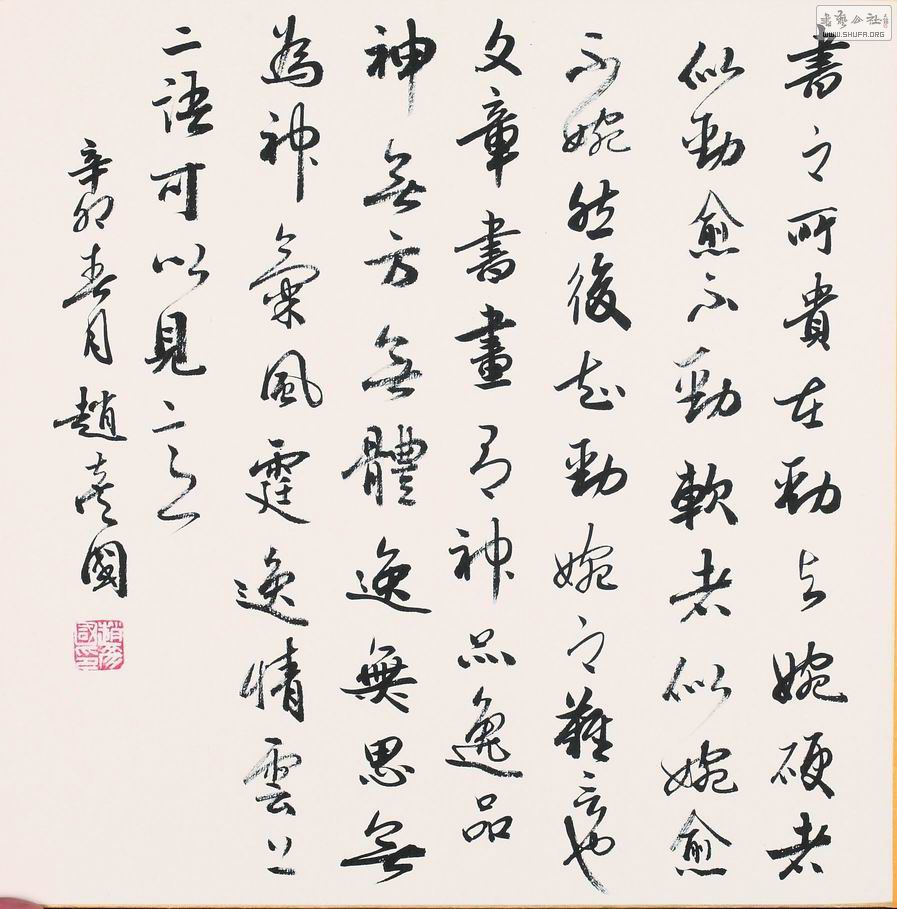 書之所貴在勁与婉硬者
似勁愈不勁軟者似婉愈
不婉然後知勁婉之難言也
文章書畫有神品逸品
神無方無體逸無思無
為神氣風霆逸情雲上
二語可以見
辛卯春月趙彥國
趙彥國印
書藝公社
WWW.SHUFA.ORG